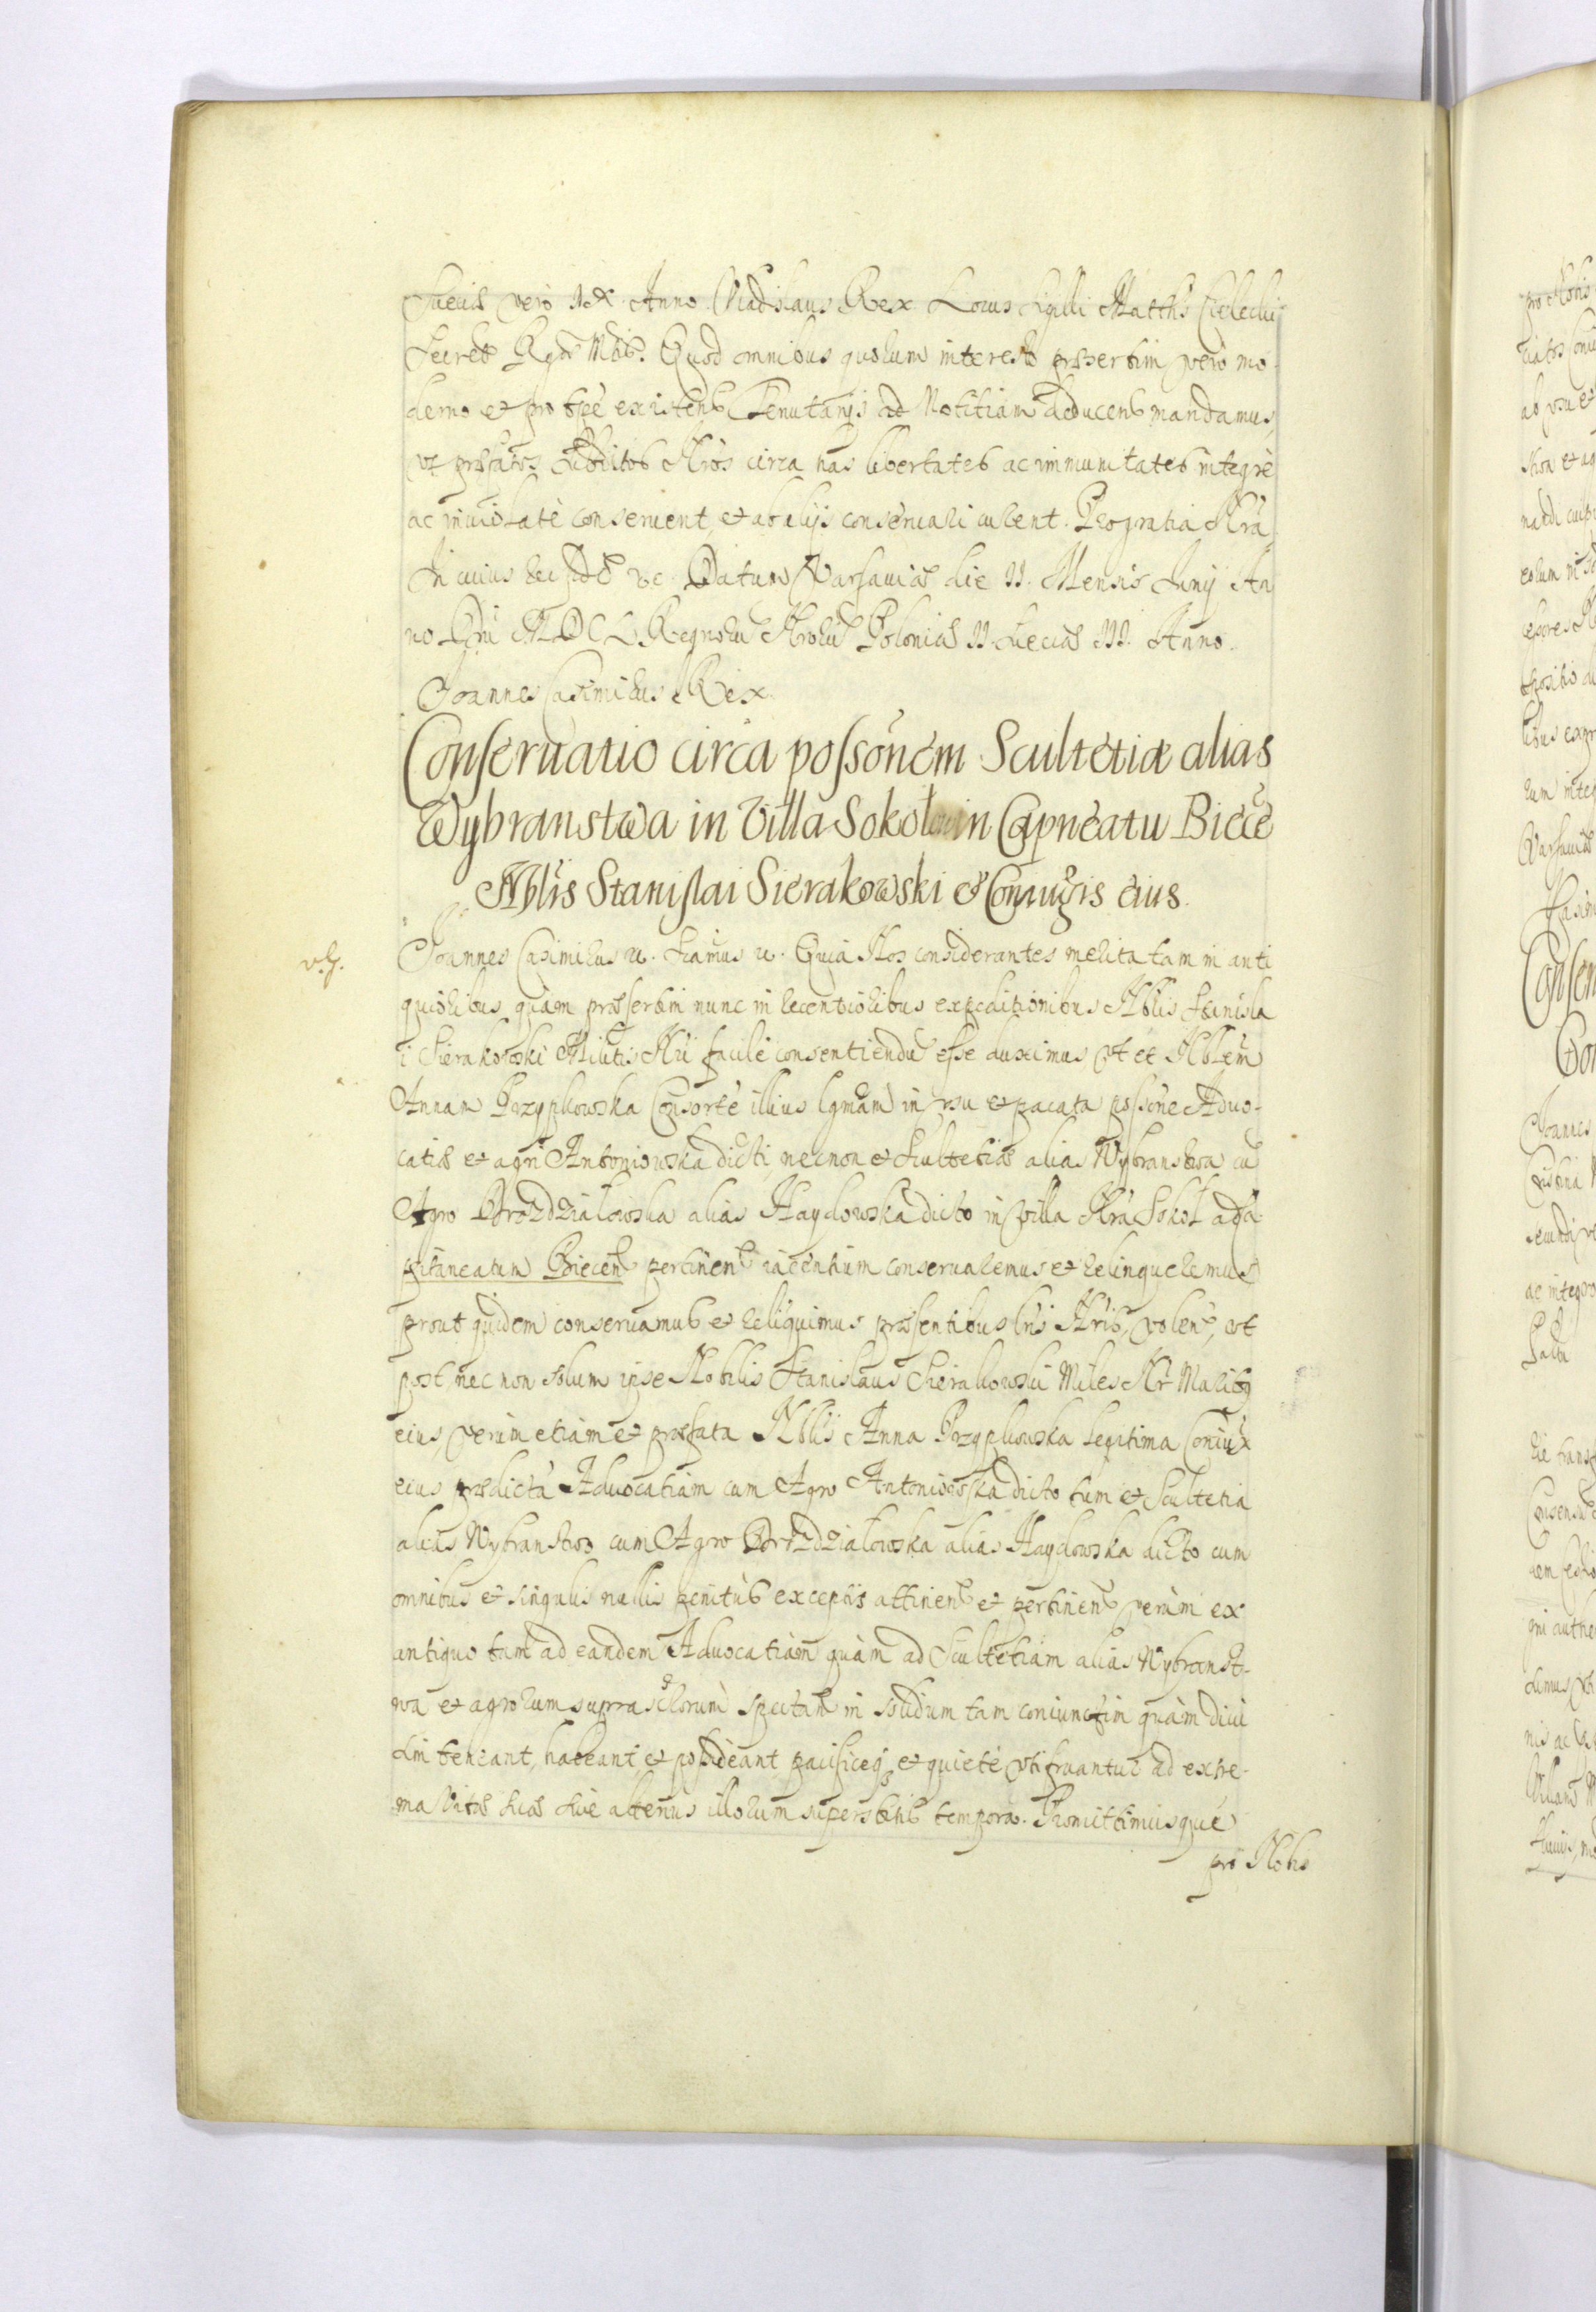 Sueciæ vero IX. Anno. Vladislaus Rex. Locus Sigilli Matths Cielecki
Secret. Rgæ Mtis. Quod omnibus quorum interest præsertim vero mo-
derno et pro tpe existen Tenutarijs ad Notitiam deducen mandamus,
vt præfatos Subditos Nros circa has libertates ac immunitates integrè
ac inuiolatè conseruent, et ab alijs conseruari curent. Pro gratia Nra
In cuius rei fidē &c. Datum Varsauiæ die II. Mensis Iunij An
no Dni MDCL Regnorū Nrorū Poloniæ II. Sueciæ III. Anno.
Ioannes Casimirus Rex.
Conseruatio circa possonem Scultetiæ alias
Wybranstwa in Villa Sokol in Capneatu Biece
Nblis Stanislai Sierakowski et Coniugis eius.
Ioannes Casimirus &. Sigmus &. Quia Nos considerantes merita tam in anti
quioribus quàm præsertim nunc in recentioribus expeditionibus Nblis Stanisla
i Sierakowski Militis Nri facilè consentiendū esse duximus, vt et Nblem
Annam Przypkowska Consortē illius lgmam in vsu et pacata possone Aduo-
catiæ et agri Antoniowska dicti, necnon et Scultetiæ alias Wybranstwa cū
Agro Drozdziałowska alias Haydowska dicto in Villa Nra Sokoł ad Ca-
pitaneatum Biecen pertinen iacentium conseruaremus et relinqueremus
prout quidem conseruamus et reliquimus præsentibus lris Nris, volen, vt
post hec non solum ipse Nobilis Stanislaus Sierakowski Miles Nr Maritus
eius verùm etiam et præfata Nblis Anna Przypkowska legitima Coniux
eius prædictā Aduocatiam cum Agro Antoniowska dicto tum et Scultetia
alias Wybranstwo cum Agro Drozdziałowska alias Haydowska dicto cum
omnibus et singulis nullis penitùs exceptis attinen et pertinen verùm ex
antiquo tam ad eandem Aduocatiam quàm ad Scultetiam alias Wybranst-
wa et agrorum suprascriptorum spectan in solidum tam coniunctim quàm diui
sim teneant, habeant et possideant pacificeq et quietè vtifruantur ad extre-
ma vitæ suæ siue alterius illorum superstitis tempora. Promittimusque
pro Nobis